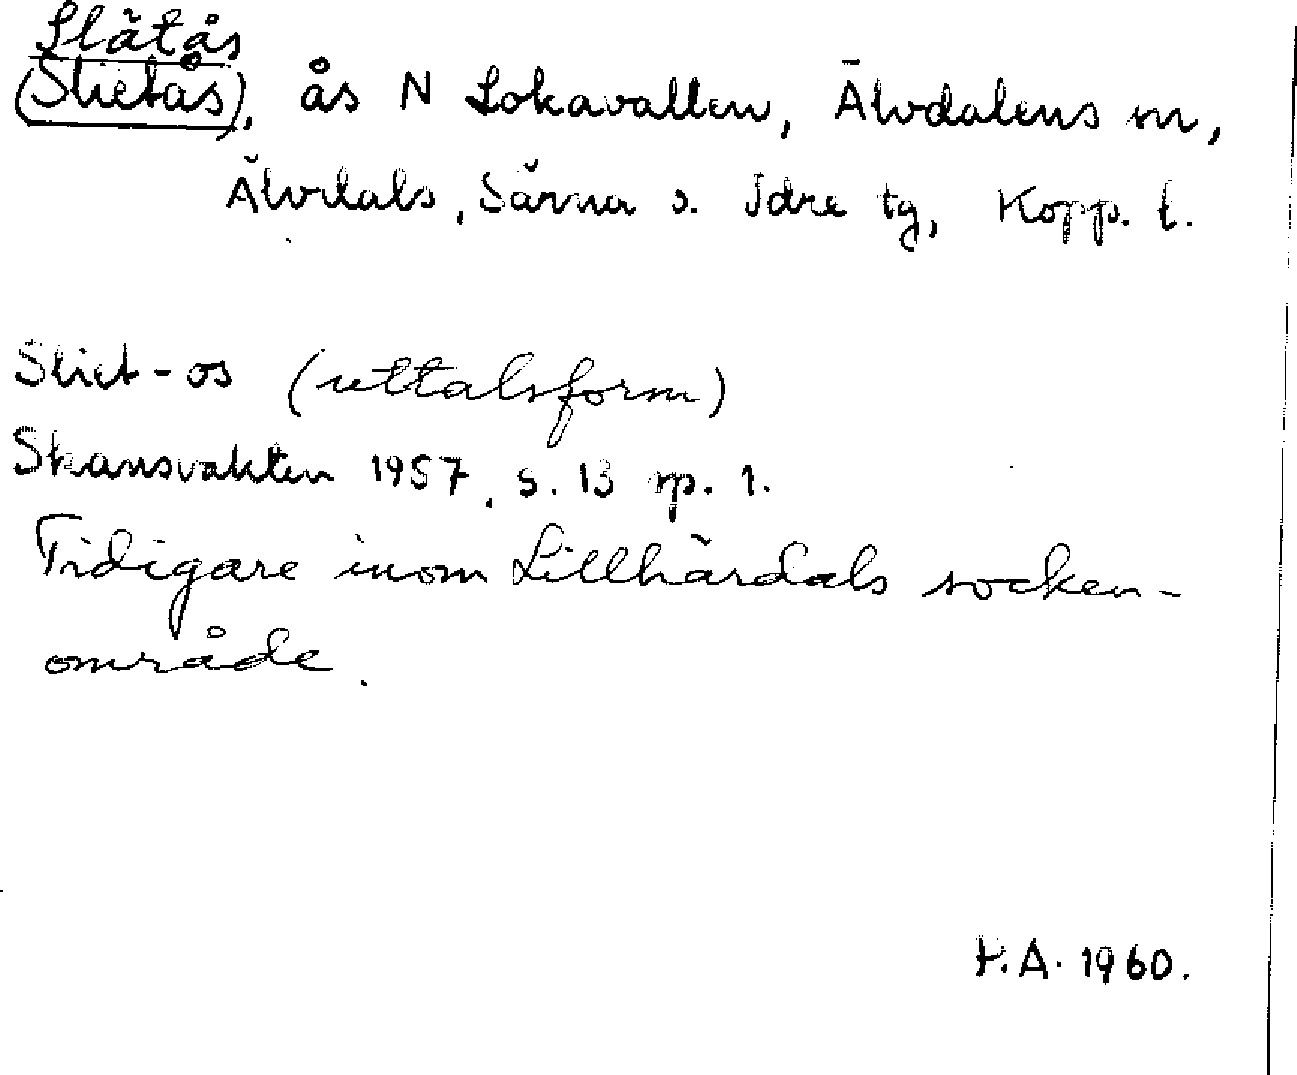 Slätås
(Slietås), ås N Lokavallen, Älvdalens sn,
Älvdals, Särna s. Idre tg, Kopp. l.
Sliet-os (uttalsform)
Skansvakten 1957, s. 13 sp. 1.
Tidigare inom Lillhärdals socken-
område.
H.A. 1960.